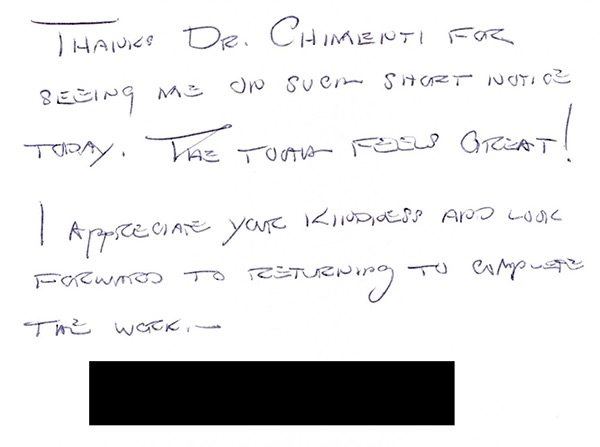 THANKS DR. CHIMENTI FOR
SEEING ME ON SUCH SHORT NOTICE
TODAY. THE TOOTH FEELS GREAT!
I APPRECIATE YOUR KINDNESS AND LOOK
FORWARD TO RETURNING TO COMPLETE
THE WORK.—